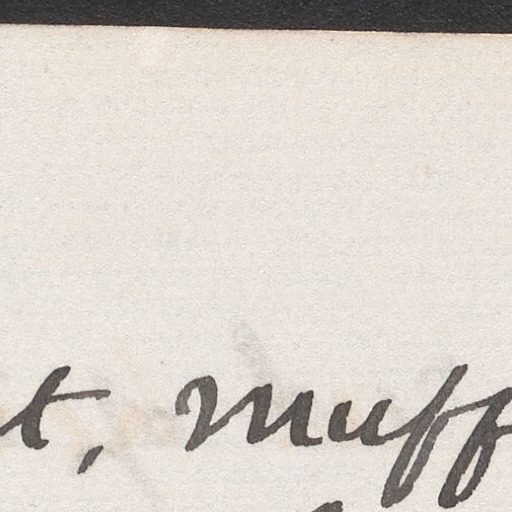 t, muff